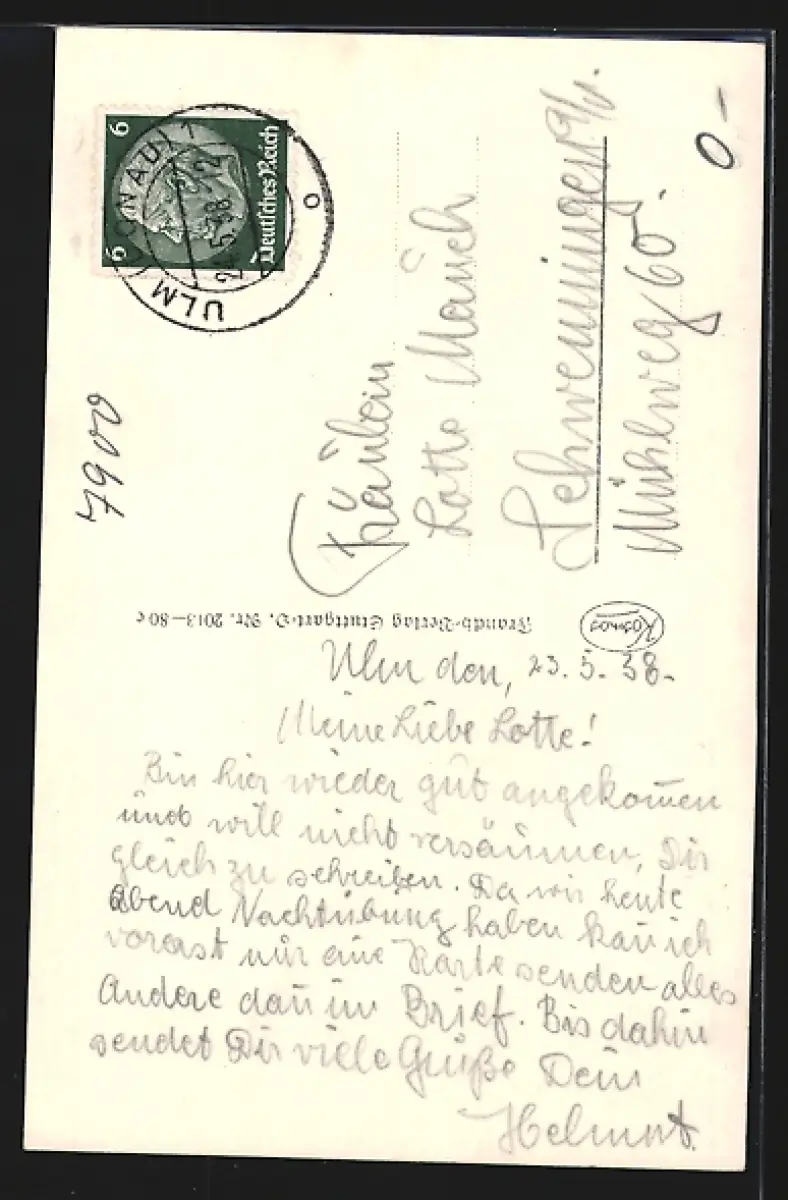 6 6
Deutsches Reich
ULM (DONAU) 1
5.38.12
7900
Fräulein
Lotte Mauch
Schwenningen a/N.
Mühlweg 60.
0-
Franckh-Verlag Stuttgart-O. Nr. 2013—80 c
Kosmos
Ulm den, 23.5.38.
Meine Liebe Lotte!
Bin hier wieder gut angekom̄en
und will nicht versäumen, Dir
gleich zu schreiben. Da wir heute
Abend Nachtübung haben kan̄ ich
vorerst nur eine Karte senden alles
Andere dan̄ im Brief. Bis dahin
sendet Dir viele Grüße Dein
Helmut.